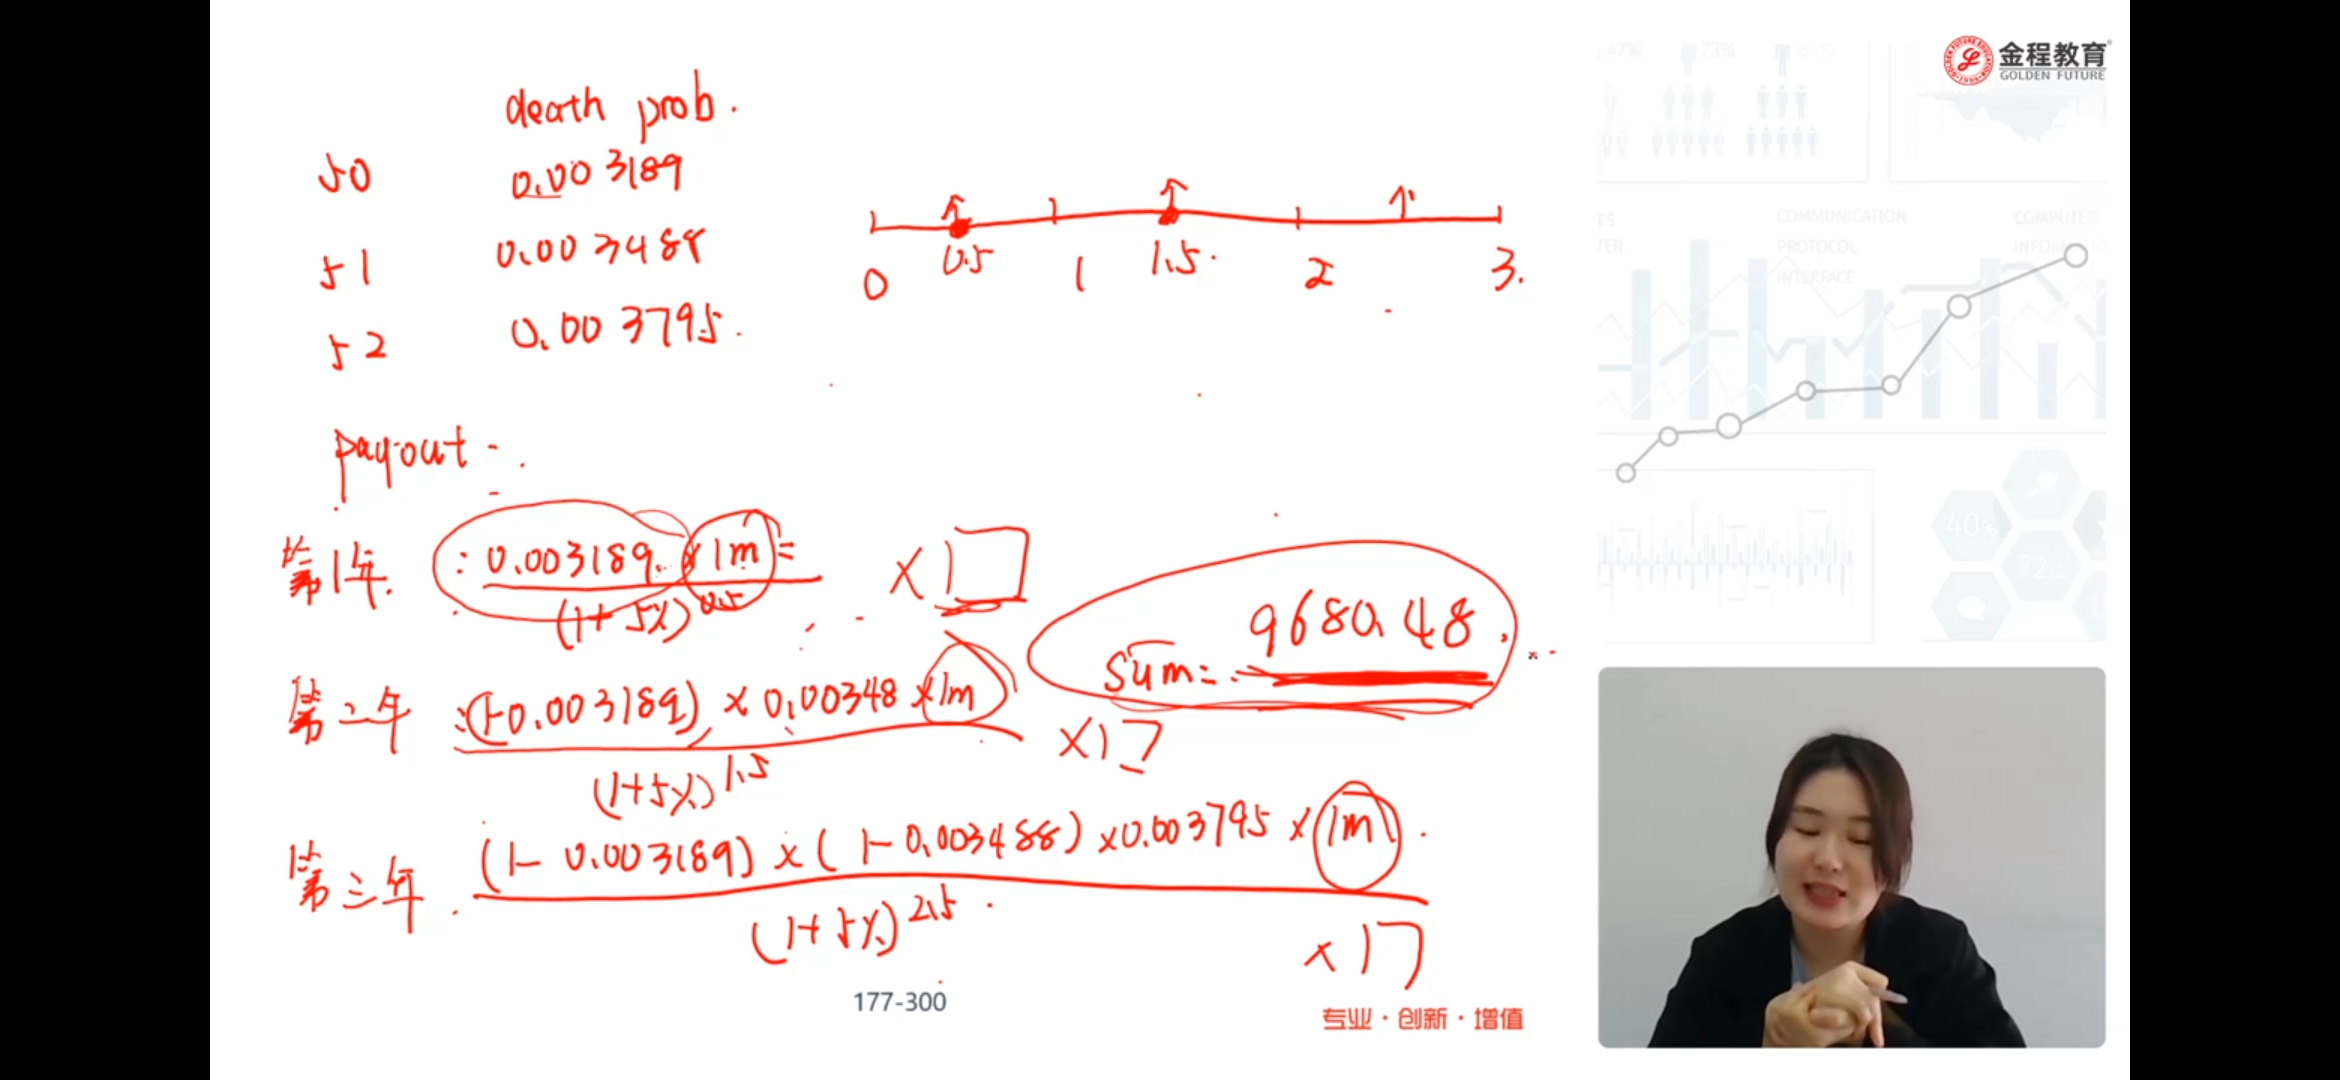 金程教育
GOLDEN FUTURE
death prob.
50 0.003189
51 0.003488
52 0.003795.
0 0.5 1 1.5. 2 3.
payout
第1年. : 0.003189 × 1m =
(1+5%)^0.5
× 17
sum = 9680.48.
第二年 : (1-0.003189) × 0.00348 × 1m
(1+5%)^1.5
×17
第三年. (1- 0.003189) × (1- 0.003488) ×0.003795 × 1m.
(1+5%)^2.5
×17
177-300
专业·创新·增值
47% 73%
COMMUNICATION
PROTOCOL
INTERFACE
COMPUTER
40%
72%